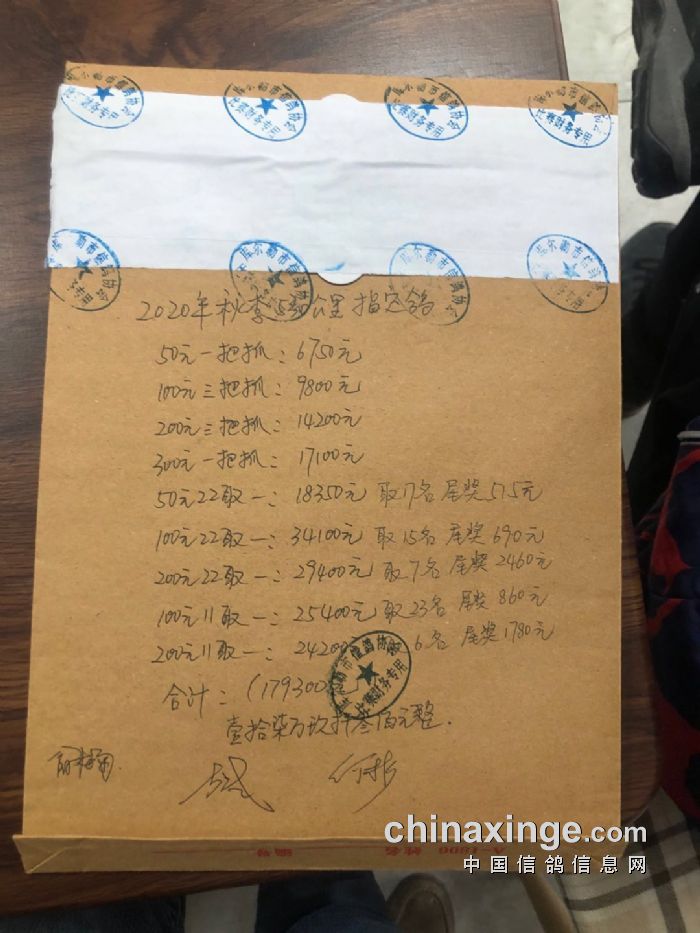 库尔勒市信鸽协会
比赛财务专用
2020年秋季530公里指定鸽
50元一把抓：6750元
100元三把抓：9800元
200元三把抓：14200元
300元一把抓：17100元
50元22取一：18350元 取17名 尾奖515元
100元22取一：34100元 取15名 尾奖690元
200元22取一：29400元 取7名 尾奖2460元
100元11取一：25400元 取23名 尾奖860元
200元11取一：24200 6名 尾奖1780元
合计：(179300
壹拾柒万玖仟叁佰元整.
chinaxinge.com
中国信鸽信息网